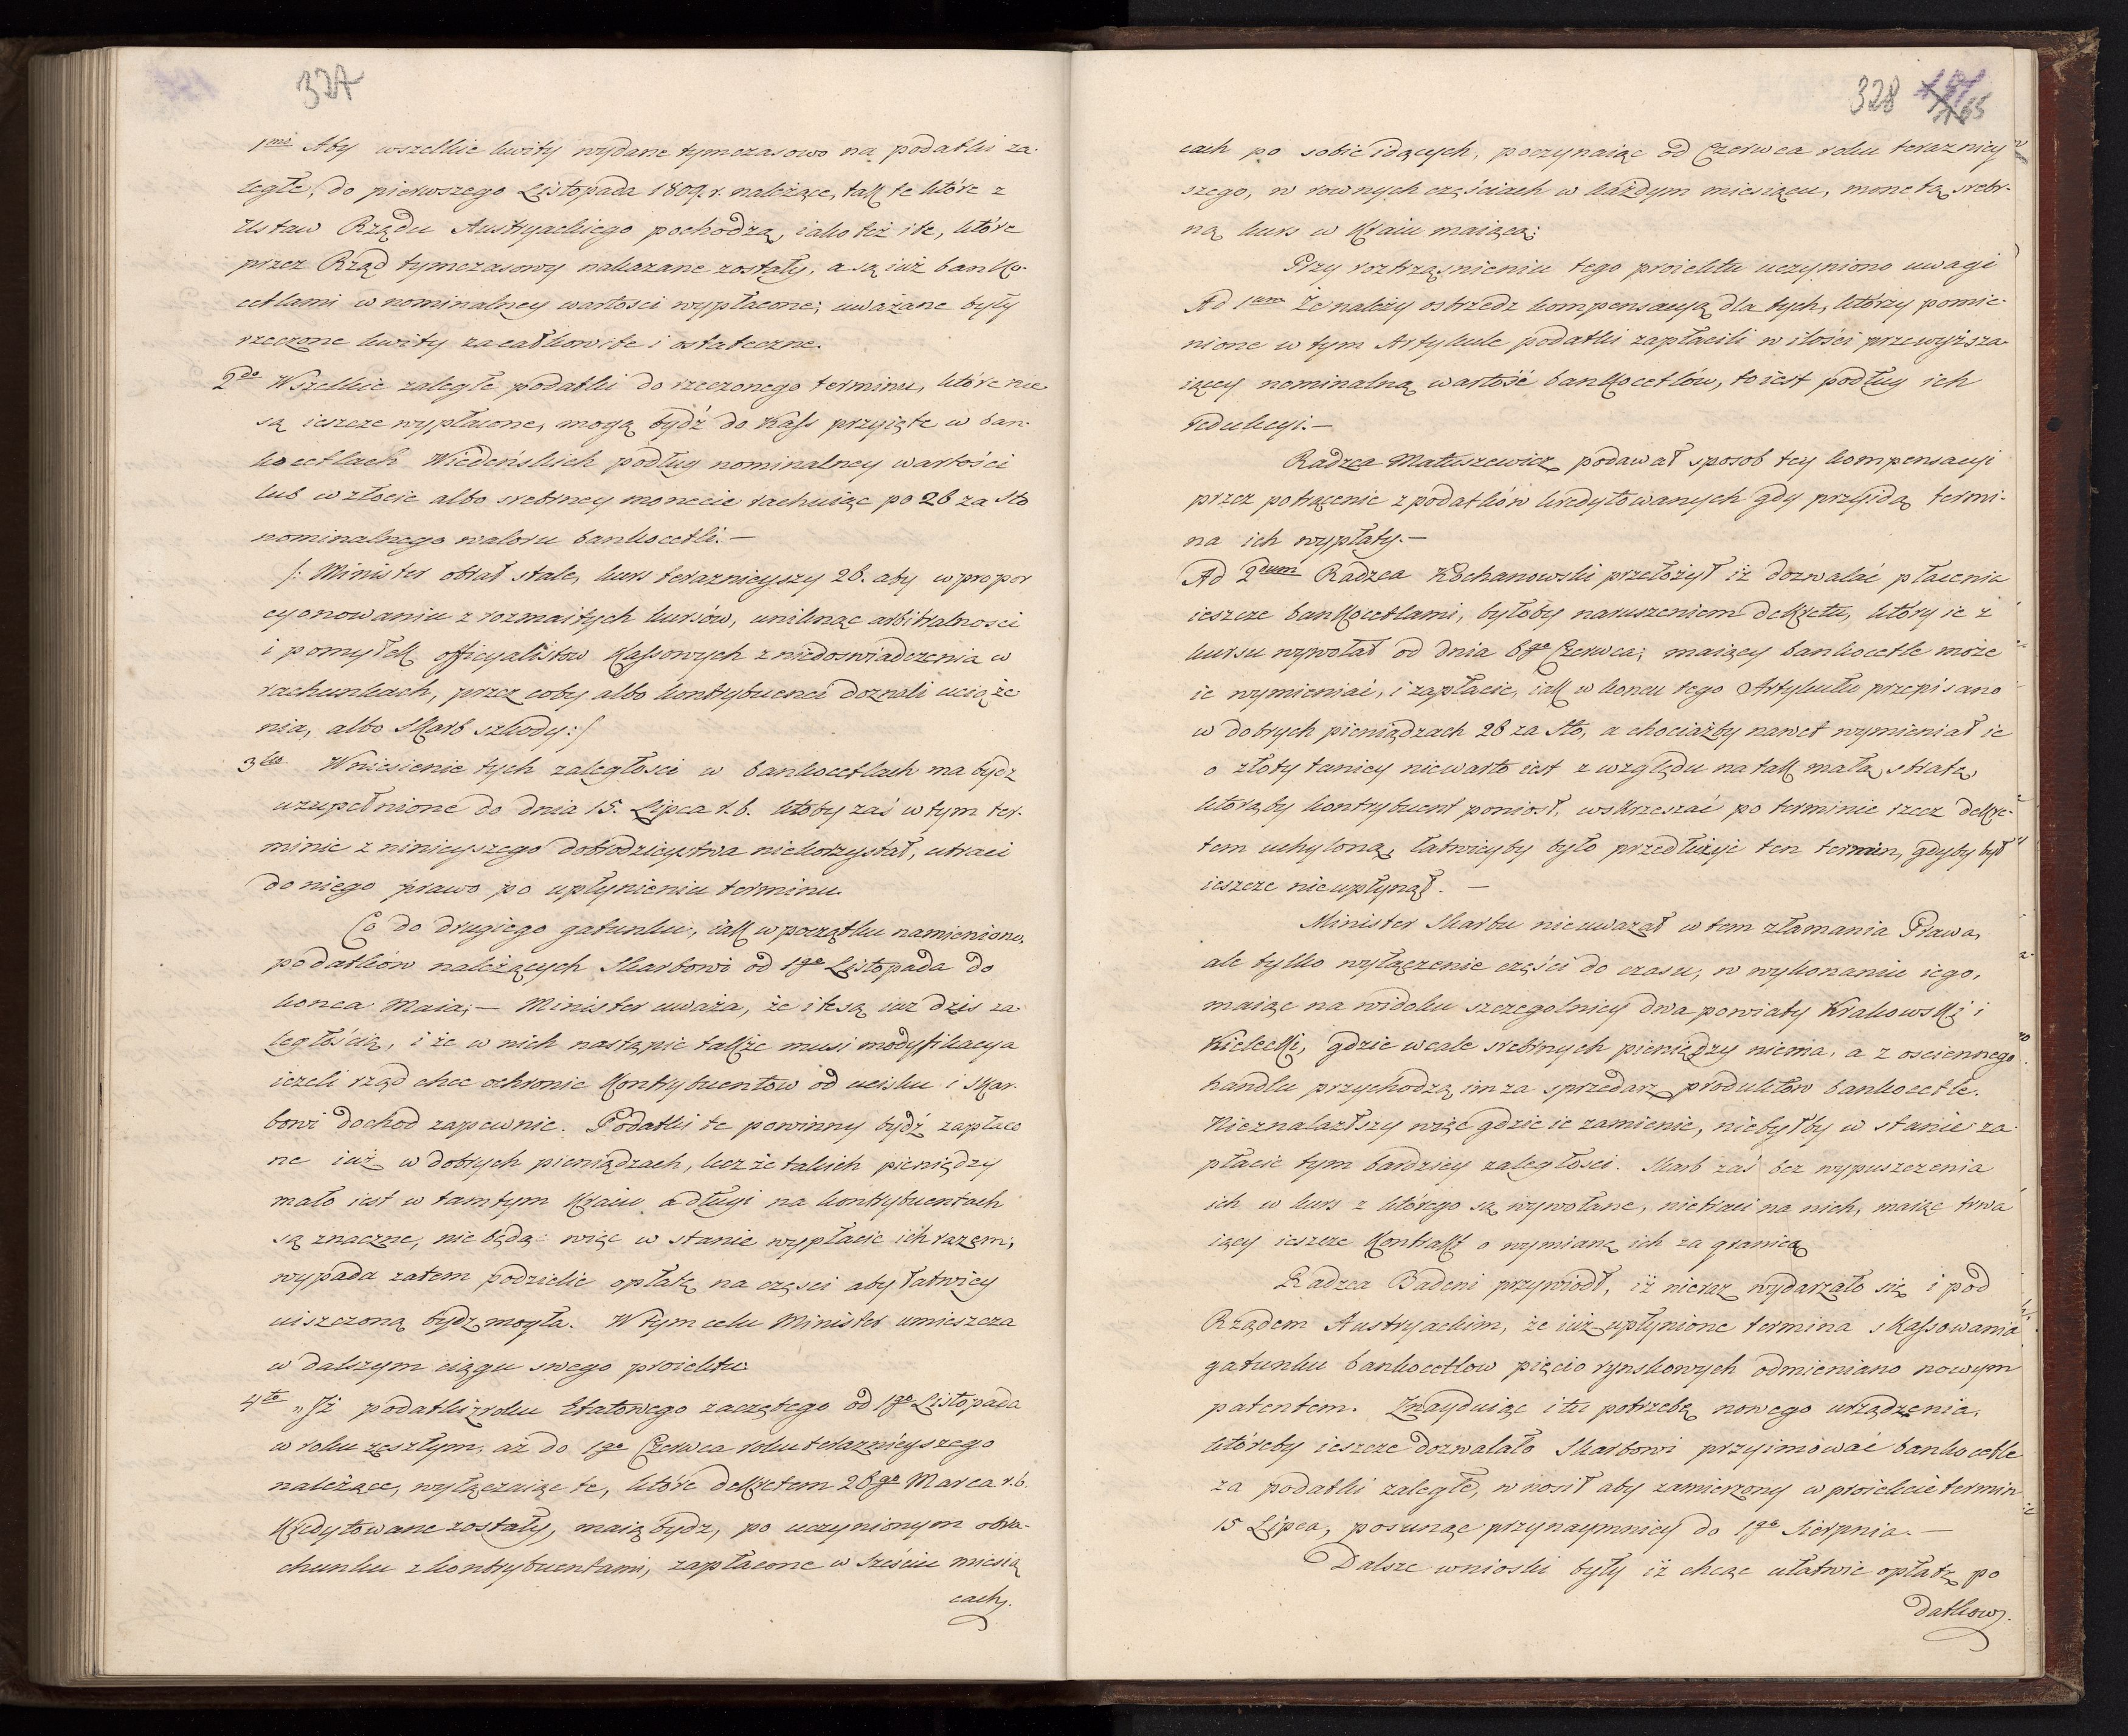 327
1mo Aby wszelkie kwity wydane tymczasowo na podatki za-
ległe, do pierwszego Listopada 1809. r. należące, tak te które z
Ustaw Rządu Austryackiego pochodzą, iako też i te, które
przez Rząd tymczasowy nakazane zostały, a są iuż banko-
cetlami w nominalney wartosci wypłacone; uważane były
rzeczone kwity za całkowite i ostateczne.
2do Wszelkie zaległe podatki do rzeczonego terminu, które nie
są ieszcze wypłacone, mogą bydź do Kass przyięte w ban-
kocetlach Wiedeńskich podług nominalney wartości
lub w złocie albo srebrney monecie rachuiąc po 26 za Sto
nominalnego waloru bankocetli. —
/: Minister obrał stale, kurs teraznieyszy 26. aby w propor
cyonowaniu z rozmaitych kursów, uniknąc arbitralnosci
i pomyłek officyalistow Kassowych z niedoswiadczenia w
rachunkach, przez coby albo kontrybuenci doznali uciąże
nia, albo Skarb szkody :/
3tio Wniesienie tych zaległosci w bankocetlach ma bydz
uzupełnione do dnia 15. Lipca r. b. ktoby zaś w tym ter-
minie z ninieyszego dobrodzieystwa niekorzystał, utraci
do niego prawo po upłynieniu terminu.
Co do drugiego gatunku, iak w początku namieniono,
podatków należących Skarbowi od 1go Listopada do
konca Maia; — Minister uważa, że i te są iuz dzis za-
ległością, i że w nich nastąpic także musi modyfikacya
ieżeli rząd chce ochronic Kontrybuentow od ucisku i Skar-
bowi dochod zapewnic. Podatki te powinny bydź zapłaco
ne iuż w dobrych pieniądzach, lecz że takich pieniędzy
mało iest w tamtym Kraiu, a długi na kontrybuentach
są znaczne, nie będą więc w stanie wypłacic ich razem;
wypada zatem podzielic opłatę na częsci aby łatwiey
uiszczoną bydz mogła. W tym celu Minister umieszcza
w dalszym ciągu swego proiektu:
4to „Iż podatki z roku Etatowego zaczętego od 1go Listopada
w roku zeszłym, aż do 1go Czerwca roku teraznieyszego
należące, wyłączaiąc te, które dekretem 26go Marca r. b.
Kredytowane zostały, maią bydz, po uczynionym obra-
chunku z kontrybuentami, zapłacone w sześciu miesią
cach.
328
cach po sobie idących, poczynaiąc od Czerwca roku terazniey
szego, w rownych częściach w każdym miesiącu, monetą srebr-
ną kurs w Kraiu maiącą:
Przy roztrząsnieniu tego proiektu uczyniono uwagi
Ad 1um Że należy ostrzedz kompensacyą dla tych, którzy pomie-
nione w tym Artykule podatki zapłacili w ilości przewyższa-
iącey nominalną wartość bankocetlów, to iest podług ich
redukcyi. —
Radzca Matuszewicz podawał sposob tey kompensacyi
przez potrącenie z podatków kredytowanych gdy przyidą termi-
na ich wypłaty. —
Ad 2dum Radzca Kochanowski przełożył iż dozwalać płacenia
ieszcze bankocetlami, byłoby naruszeniem dekretu, który ie z
kursu wywołał od dnia 6go Czerwca; maiący bankocetle może
ie wymieniać, i zapłacic, iak w koncu tego Artykułu przepisano
w dobrych pieniądzach 26 za Sto, a chociażby nawet wymieniał ie
o złoty taniey niewarto iest z względu na tak małą stratę,
którąby kontrybuent poniosł, wskrzeszać po terminie rzecz dekre-
tem uchyloną, łatwieyby było przedłużyć ten termin, gdyby był
ieszcze nieupłynął. —
Minister Skarbu nieuwazał w tem złamania Prawa,
ale tylko wyłączenie części do czasu, w wykonaniu iego,
maiąc na widoku szczegolniey dwa powiaty Krakowski i
Kielecki, gdzie wcale srebrnych pieniędzy niema, a z osciennego
handlu przychodzą im za sprzedarz produktow bankocetle.
Nieznalazłszy więc gdzie ie zamienic, niebyłby w stanie za-
płacic tym bardziey zaległosci. Skarb zaś bez wypuszczenia
ich w kurs z którego są wywołane, nietraci na nich, maiąc trwa
iący ieszcze Kontrakt o wymianę ich za granicą
Radzca Badeni przywiodł, iż nieraz wydarzało się i pod
Rządem Austryackim, że iuż upłynione termina skassowania
gatunku bankocetlow pięcio rynskowych odmieniano nowym
patentem. Znayduiąc i tu potrzebę nowego urządzenia,
któreby ieszcze dozwalało Skarbowi przyimować bankocetle
za podatki zaległe, wnosił aby zamierzony w proiekcie termin
15 Lipca, posunąc przynaymniey do 1go Sierpnia. —
Dalsze wnioski były iż chcąc ułatwic opłatę po
datkow.